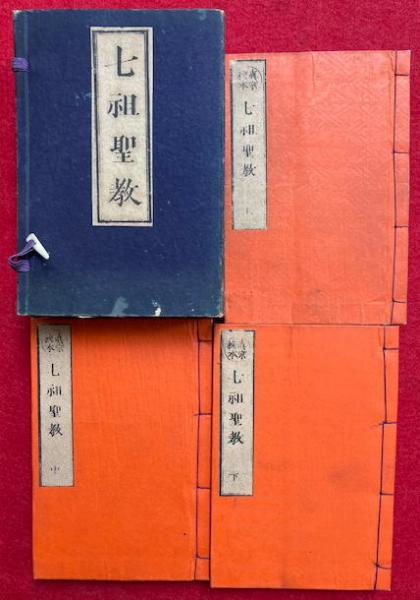 七祖聖教
七祖聖教
上
七祖聖教
中
七祖聖教
下